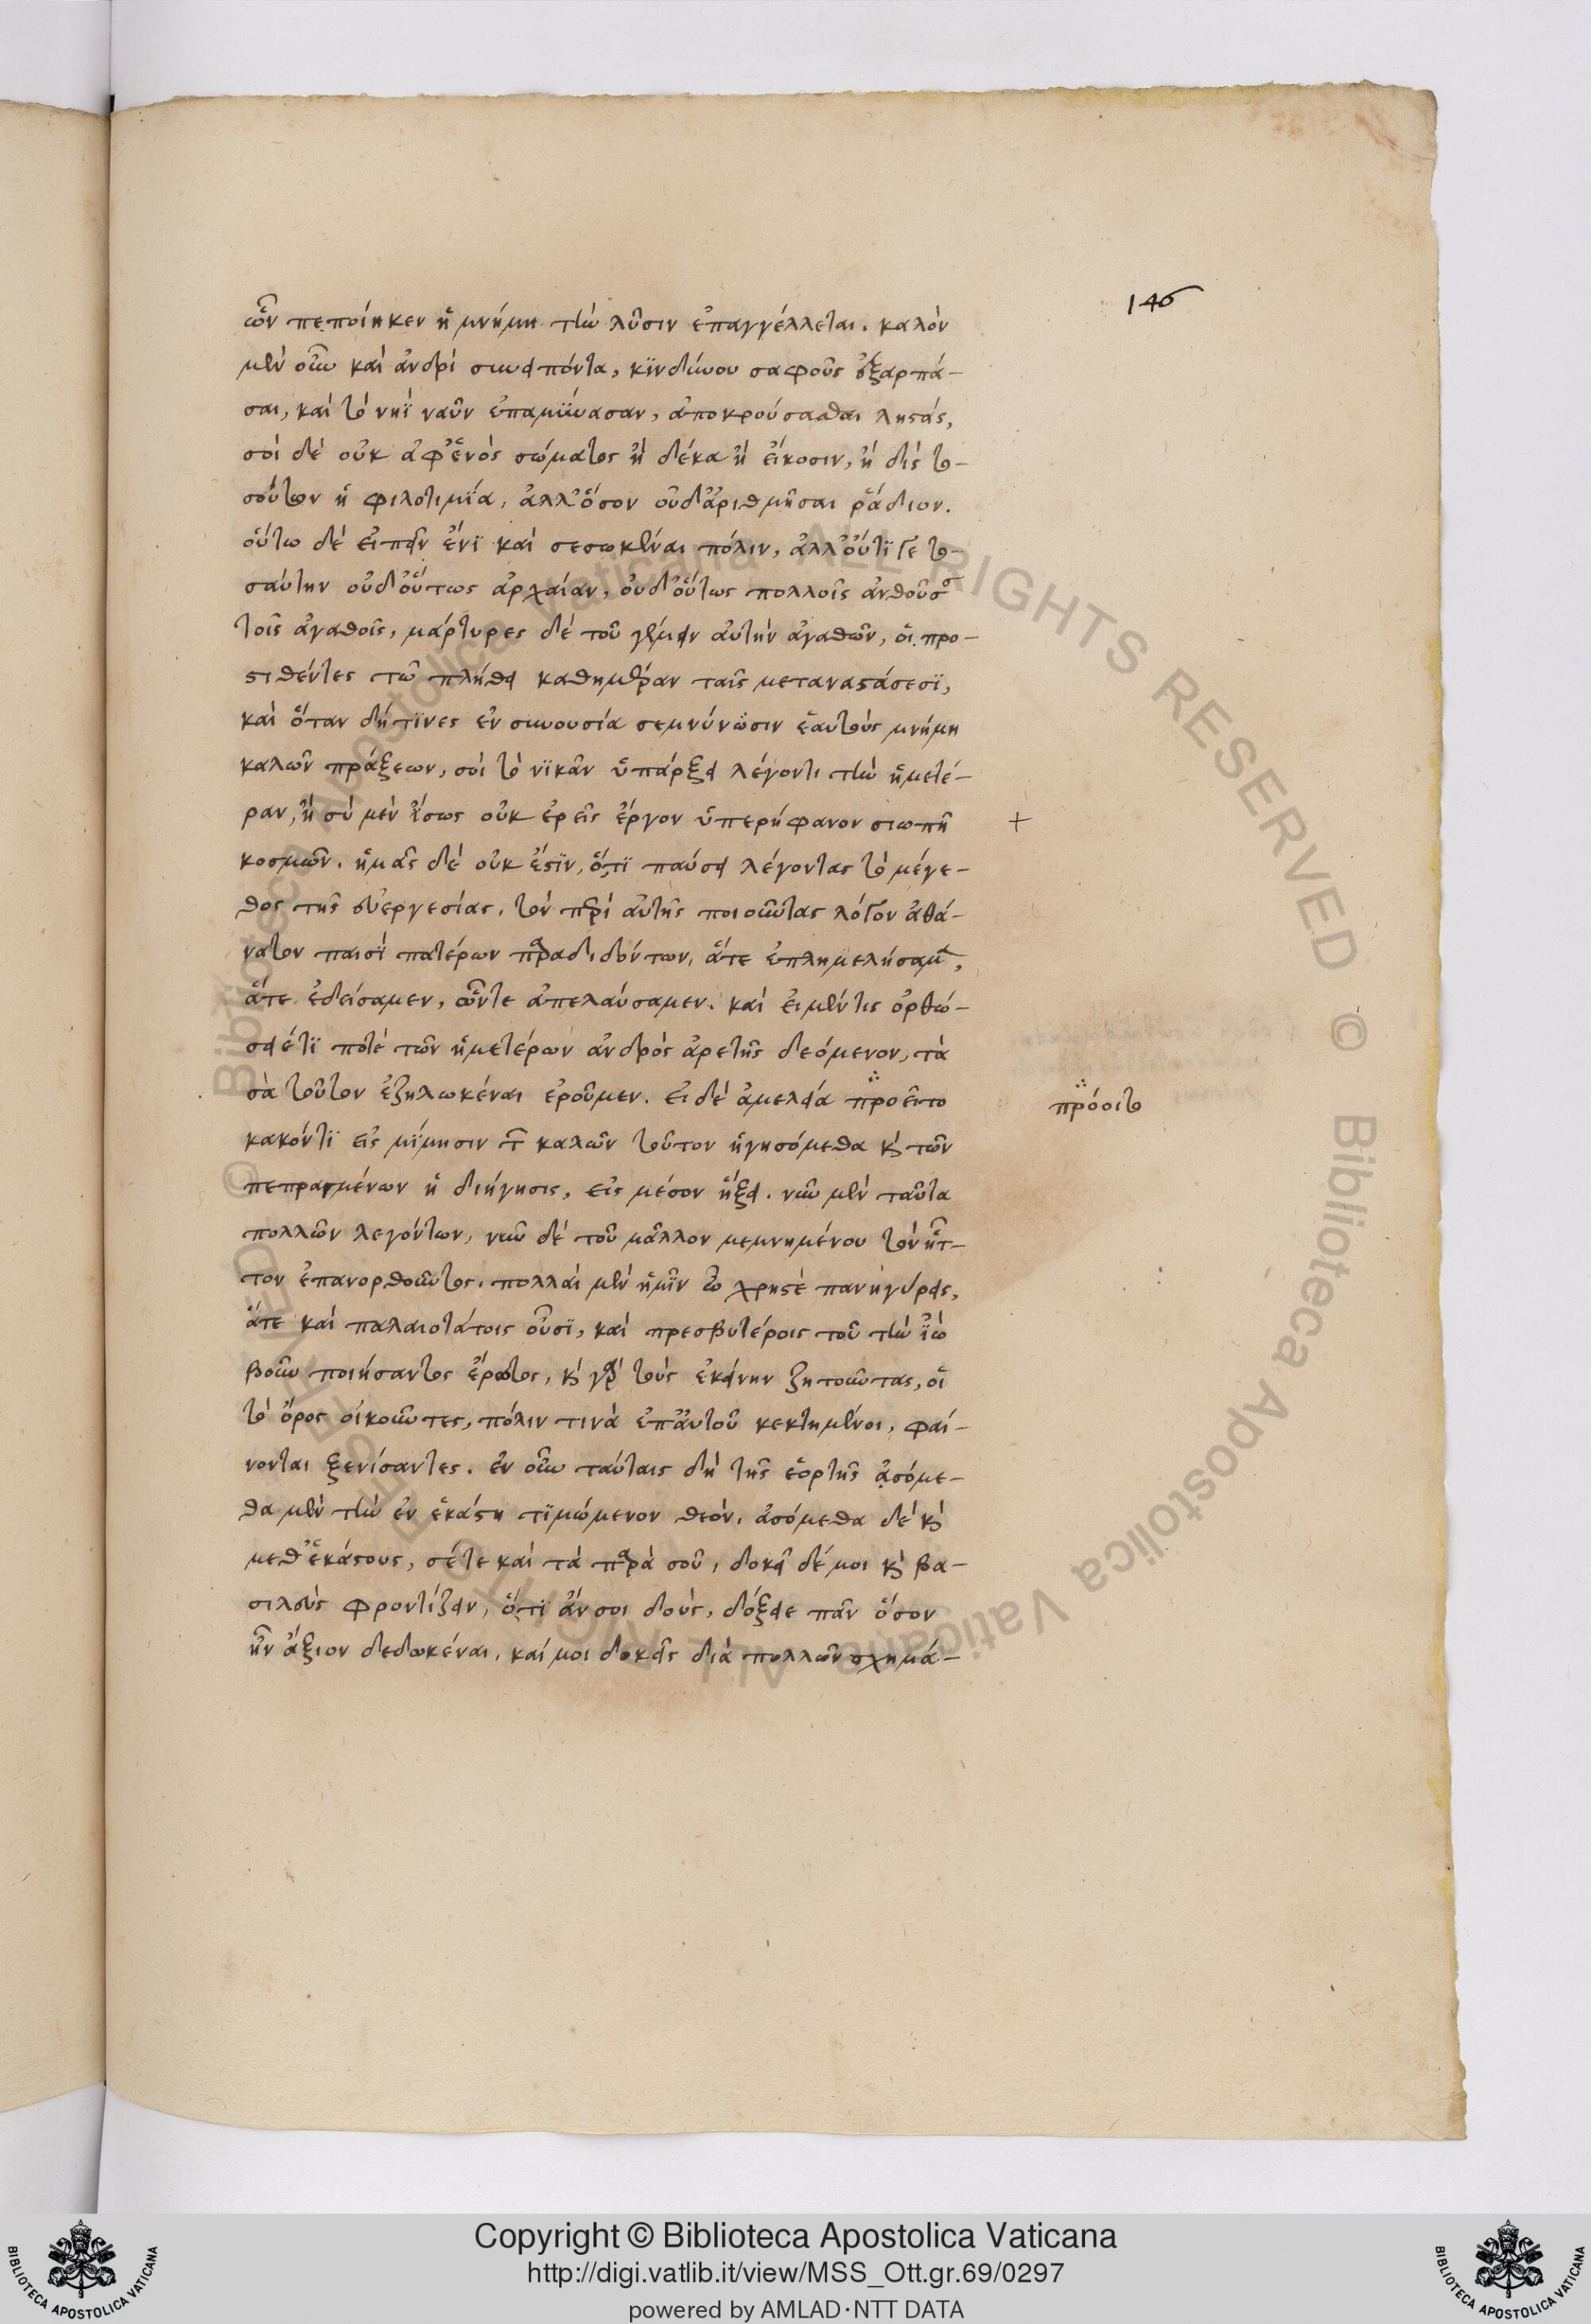 146
ὧν πεποίηκεν ἡ μνήμη τὴν λύσιν ἐπαγγέλλεται. καλὸν
μὲν οὖν καὶ ἀνδρὶ συμπεσόντα, κϊνδύνου σαφοῦς ἐξαρπά-
σαι, καὶ τὸ νηῒ ναῦν ἐπαμύνασαν, ἀποκρούσασθαι ληστάς,
σοὶ δὲ οὐκ ἀφ' ἑνὸς σώματος ἢ δέκα ἢ εἴκοσιν, ἢ δὶς το-
σούτων ἡ φιλοτιμΐα, ἀλλ' ὅσον οὐδ' ἀριθμῆσαι ῥάδιον.
οὕτω δὲ εἰπεῖν ἑνῒ καὶ σεσωκέναι πόλιν, ἀλλ' οὔτϊ γε το-
σαύτην οὐδ' οὕτως ἀρχαίαν, οὐδ' οὕτως πολλοῖς ἀνθοῦσαν
τοῖς ἀγαθοῖς, μάρτυρες δὲ τοῦ γέμειν αὐτὴν ἀγαθῶν, οἱ προ-
στιθέντες τῶ πλήθει καθημέραν ταῖς μεταναστάσεσϊ,
καὶ ὅταν δή τϊνες ἐν συνουσία σεμνύνωσιν ἑαυτοὺς μνήμη
καλῶν πράξεων, σοὶ τὸ νϊκᾶν ὑπάρξει λέγοντι τὴν ἡμετέ-
ραν, ἢ σὺ μὲν ἴσως οὐκ ἐρεῖς ἔργον ὑπερήφανον σιωπῆ
κοσμῶν. ἡμᾶς δὲ οὐκ ἔστϊν, ὅ,τϊ παύσει λέγοντας τὸ μέγε-
θος τῆς εὐεργεσίας. τὸν περὶ αὐτῆς ποιοῦντας λόγον ἀθά-
νατον παισῒ πατέρων παραδιδόντων, ἅτε ἐπλημελήσαμεν,
ἅτε ἐδείσαμεν, ὧντε ἀπελαύσαμεν. καὶ εἰ μέν τις ὀρθώ-
σει έτϊ ποτὲ τῶν ἡμετέρων ἀνδρὸς ἀρετῆς δεόμενον, τὰ
σὰ τοῦτον ἐζηλωκέναι ἐροῦμεν. εἰ δὲ ἀμελεία προεῖτο
πρόοιτο
κακόν τϊ εἰς μϊμησιν τῶν καλῶν τοῦτον ἡγησόμεθα καὶ τῶν
πεπραγμένων ἡ διήγησις, εἰς μέσον ἥξει. νῦν μὲν ταῦτα
πολλῶν λεγόντων, νῦν δὲ τοῦ μᾶλλον μεμνημένου τὸν ἧτ-
τον ἐπανορθοῦντος. πολλαὶ μὲν ἡμῖν ὦ χρηστὲ πανηγύρεις,
ἅτε καὶ παλαιοτάτοις οὖσϊ, καὶ πρεσβυτέροις τοῦ τὴν ἰὼ
βοῦν ποιήσαντος ἔρωτος, καὶ γὰρ τοὺς ἐκείνην ζητοῦντας, οἱ
τὸ ὄρος οἰκοῦντες, πόλιν τινὰ ἐπ' αὐτοῦ κεκτημένοι, φαί-
νονται ξενίσαντες. ἐν οὖν ταύταις δὴ τῆς ἑορτῆς ἀσόμε-
θα μὲν τὴν ἐν ἑκάστη τϊμώμενον θεόν, ἀσόμεθα δὲ καὶ
μεθ' ἑκάστους, σέ τε καὶ τὰ παρὰ σοῦ, δοκεῖ δέ μοι καὶ βα-
σιλεὺς φροντίζειν, ὅ,τϊ ἄν σοι δοὺς, δόξειε πᾶν ὅσον
ἦν ἄξιον δεδωκέναι, καί μοι δοκεῖς διὰ πολλῶν σχημά-
Copyright © Biblioteca Apostolica Vaticana
http://digi.vatlib.it/view/MSS_Ott.gr.69/0297
powered by AMLAD·NTT DATA